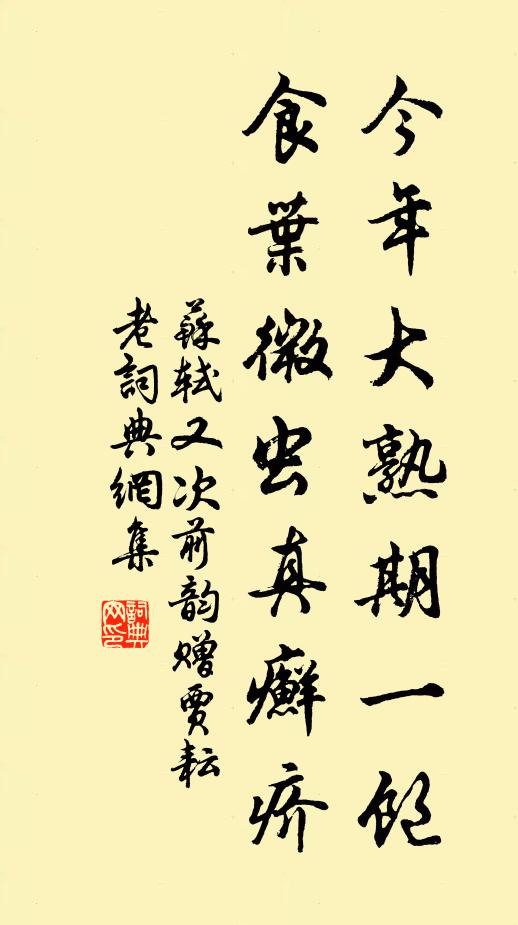 今年大熟期一飽
食葉微虫真癬疥
蘇軾又次前韵赠賈耘
老詞典網集
詞典网印